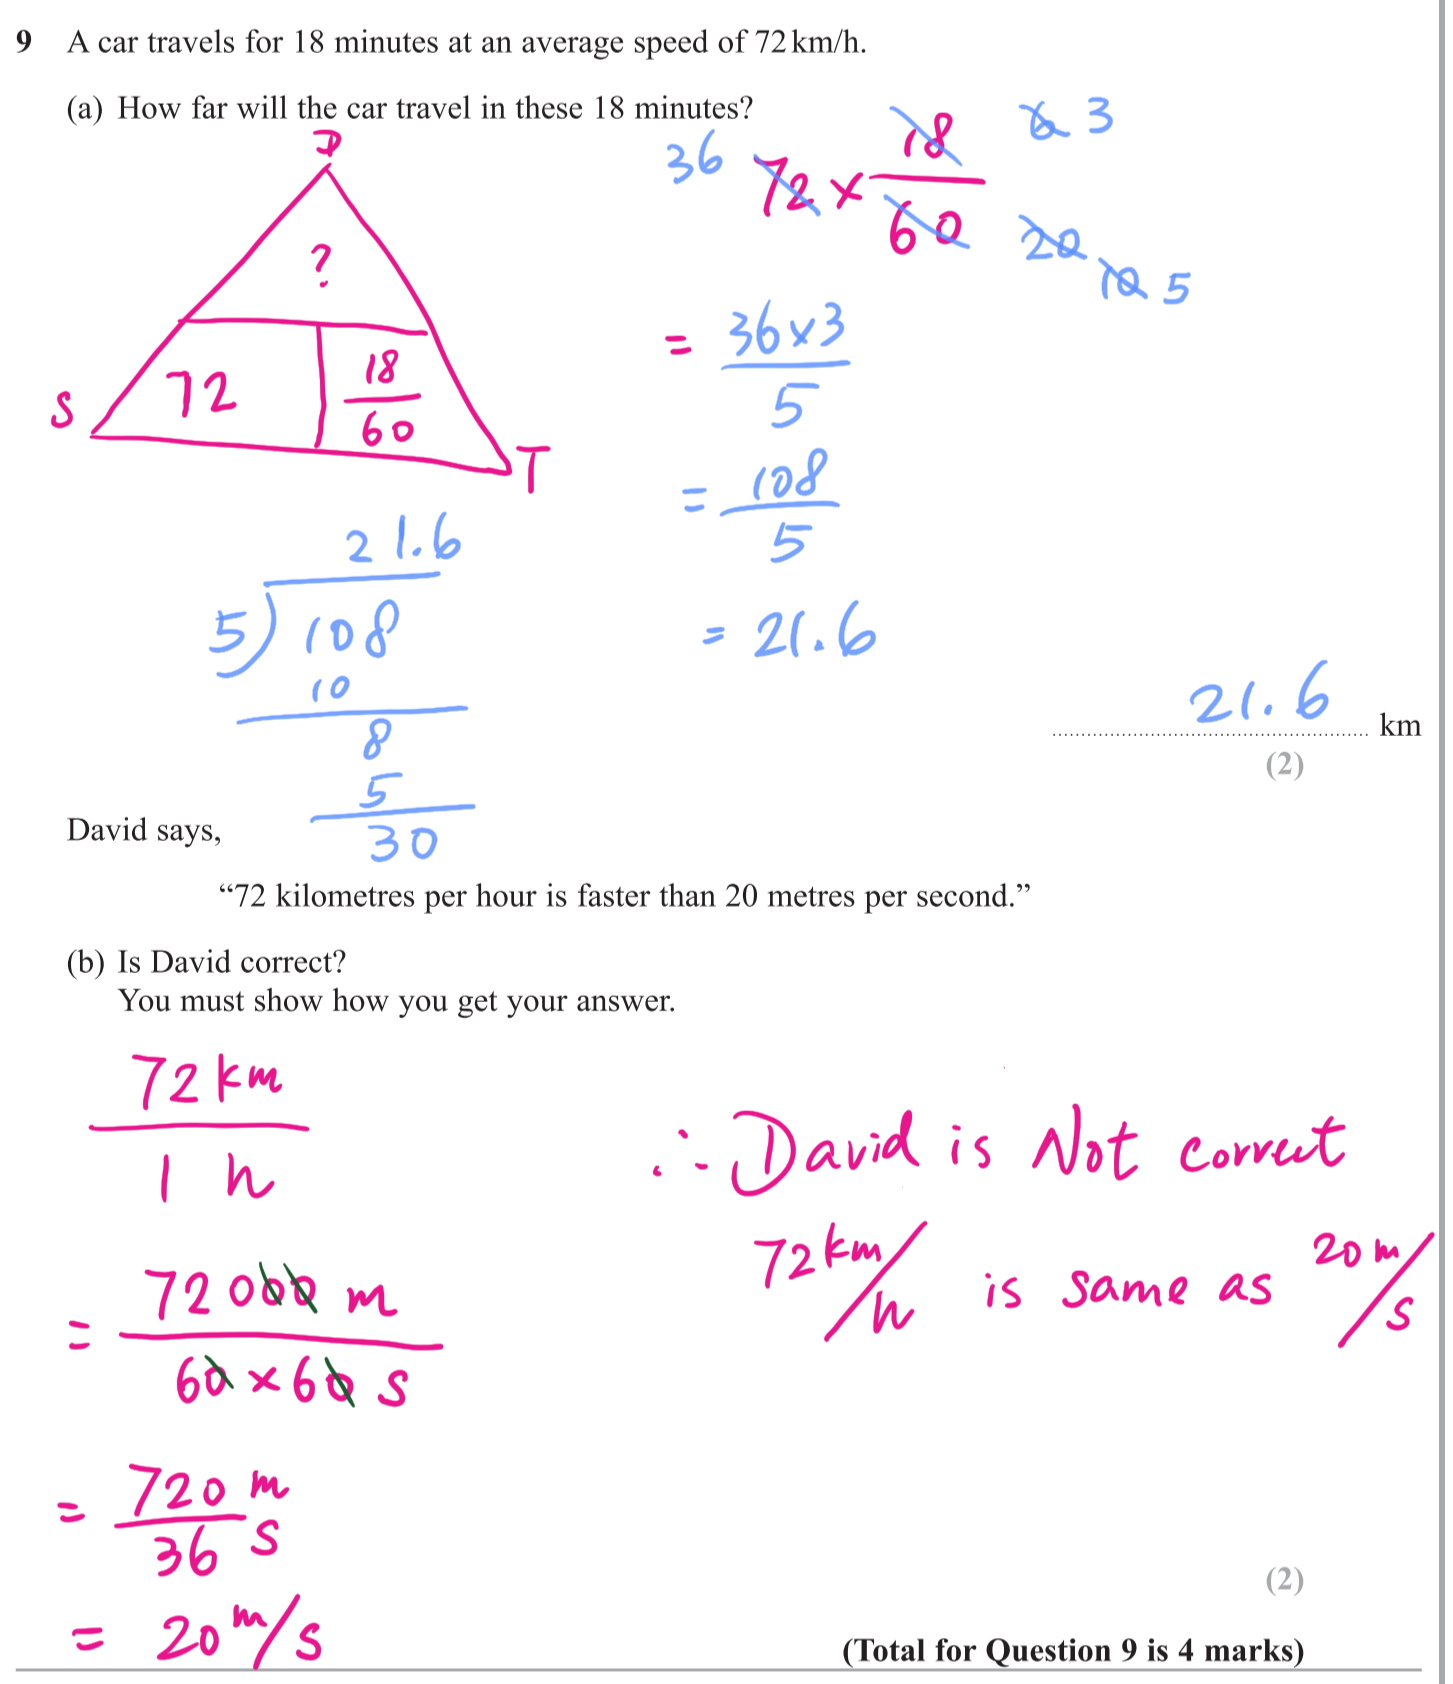 9 A car travels for 18 minutes at an average speed of 72 km/h.
(a) How far will the car travel in these 18 minutes?
D
?
S 72 18/60 T
36 72 × 18/60 6 3
20 10 5
= 36×3/5
= 108/5
= 21.6
21.6
5)108
10
8
5
30
21.6 km
(2)
David says,
“72 kilometres per hour is faster than 20 metres per second.”
(b) Is David correct?
You must show how you get your answer.
72 km
1 h
= 72000 m
60×60 s
= 720 m
36 s
= 20 m/s
∴ David is Not correct
72 km/h is same as 20 m/s
(2)
(Total for Question 9 is 4 marks)